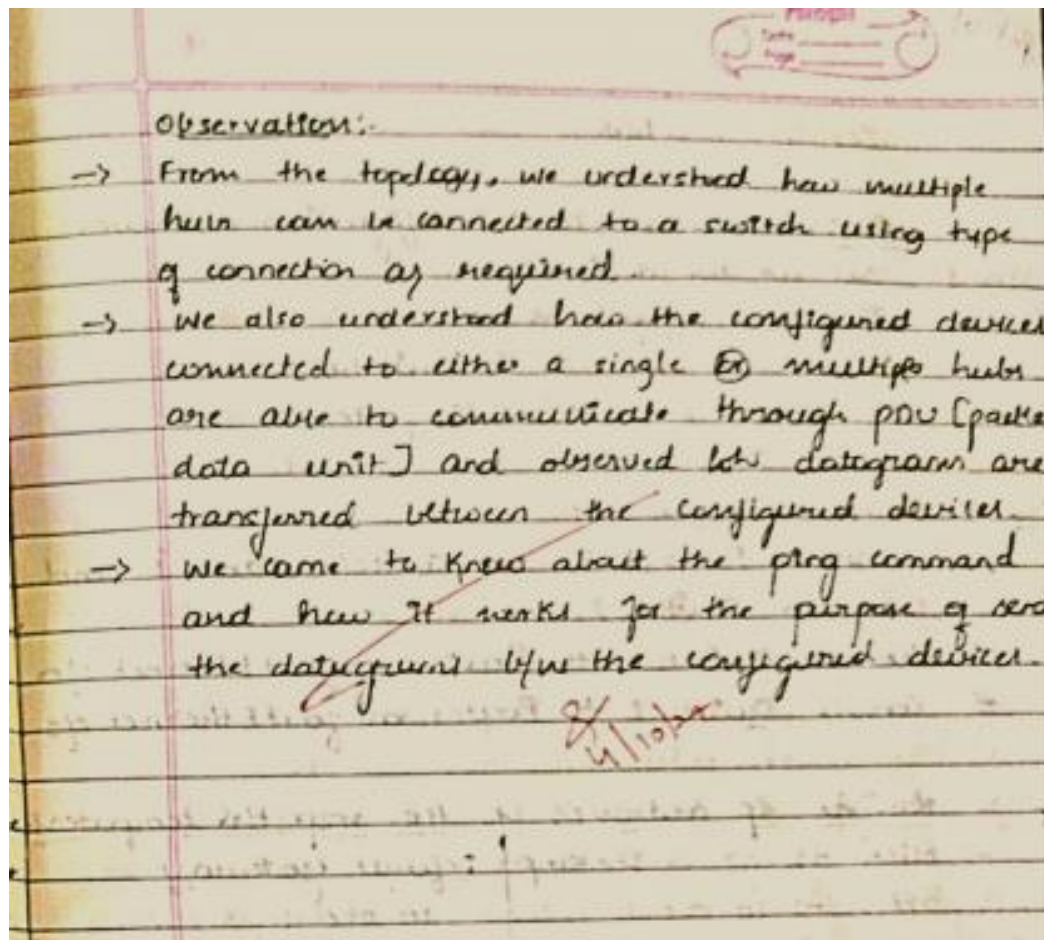 Date
Page
Observation:-
→ From the topology, we understood how multiple
hubs can be connected to a switch using type
of connection as required.
→ we also understood how the configured devices
connected to either a single or multiple hubs
are able to communicate through PDU [packe
data unit] and observed how datagrams are
transferred between the configured devices.
→ we came to know about the ping command
and how it works for the purpose of send
the datagrams b/w the configured devices.
4/10/24